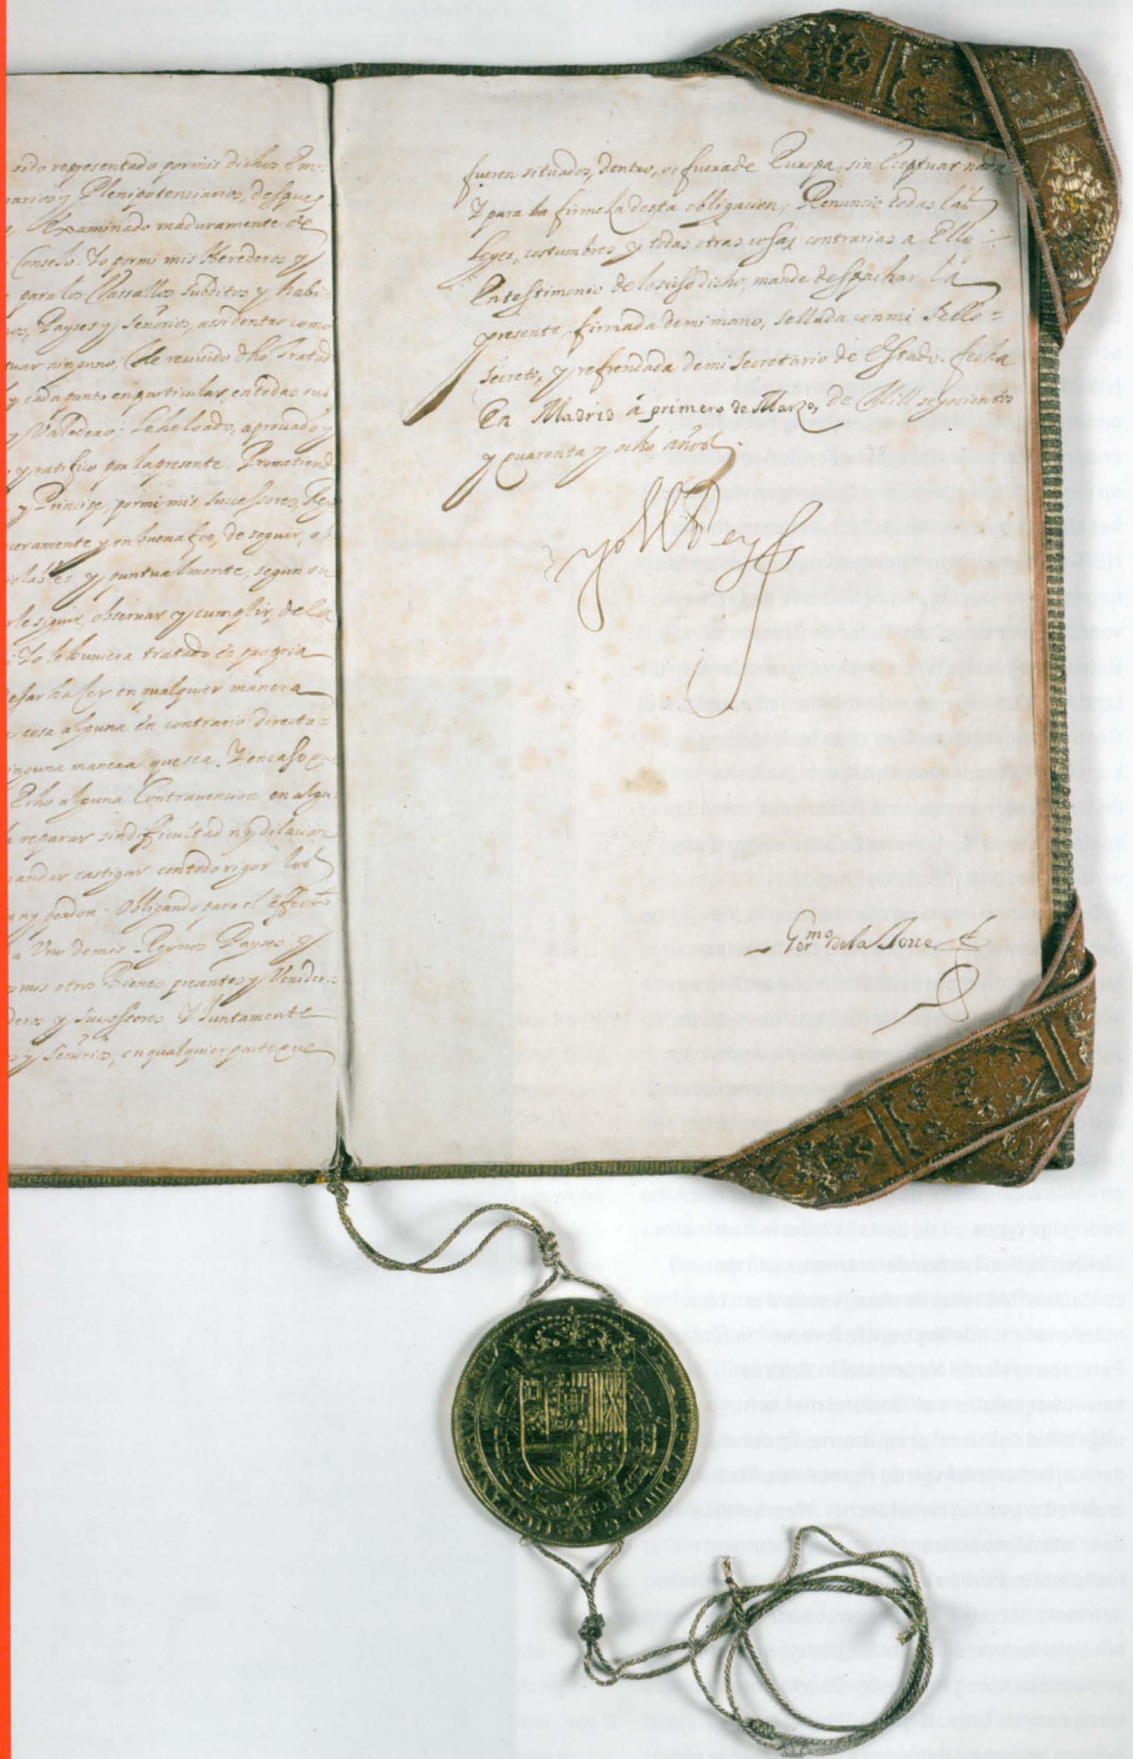 sido representado por mis dichos Em-
sarios y Plenipotenciarios, despues
Examinado maduramente de
Conseso. Yo por mi mis Herederos y
para los Vassallos subditos y habi-
Payses y Señorios, assi dentro como
tuar ninguno, he recivido dho Tratad
y cada punto en particular, en todas sus
y Valedero; Le he loado, aprovado y
y ratifico por la presente. Prometiend
y Principe, por mi mis successores, Rey
ceramente y en buena fee, de seguir, ob
iolable y puntualmente, segun su
rle seguir, observar y cumplir, de la
Yo le huviera tratado en propria
exar hazer en qualquier manera
cosa alguna en contrario directa-
inguna manera que sea. Y en caso que
Echo alguna Contravencion en algu
reparar sin difficultad ny dilacion
andar castigar con todo rigor los
ny perdon. Obligando para el effecto
Uno de mis Reynos Payses y
mis otros Bienes presentes y Venider-
deros y Successores Y Juntamente
y Señorios, en qualquier parte que
fueren situados, dentro, o fuera de Europa, sin Eceptuar nada
Y para la firmeza desta obligacion, Renuncio todas las
Leyes, costumbres y todas otras cosas contrarias a Ello
En testimonio de lo suso dicho, mande despachar la
presente, firmada de mi mano, sellada con mi Sello
secreto, y refrendada de mi Secretario de Estado. fecha
En Madrid á primero de Marzo, de Mill seyscientos
y quarenta y ocho años.
yo el Rey
Germo de la Torre